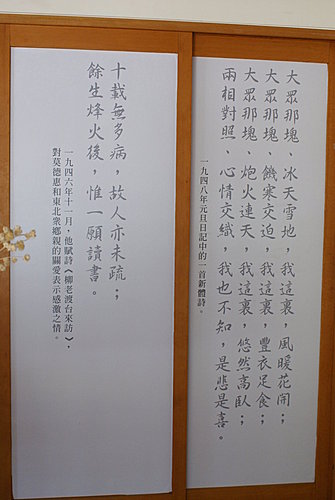 大眾那塊、冰天雪地，我這裏，風暖花開；
大眾那塊、饑寒交迫，我這裏，豐衣足食；
大眾那塊、炮火連天，我這裏，悠然高臥；
兩相對照、心情交織，我也不知，是悲是喜。
一九四八年元旦日記中的一首新體詩。
十載無多病，故人亦未疏；
餘生烽火後，惟一願讀書。
一九四六年十一月，他賦詩〈柳老渡台來訪〉，
對莫德惠和東北眾鄉親的關愛表示感激之情。